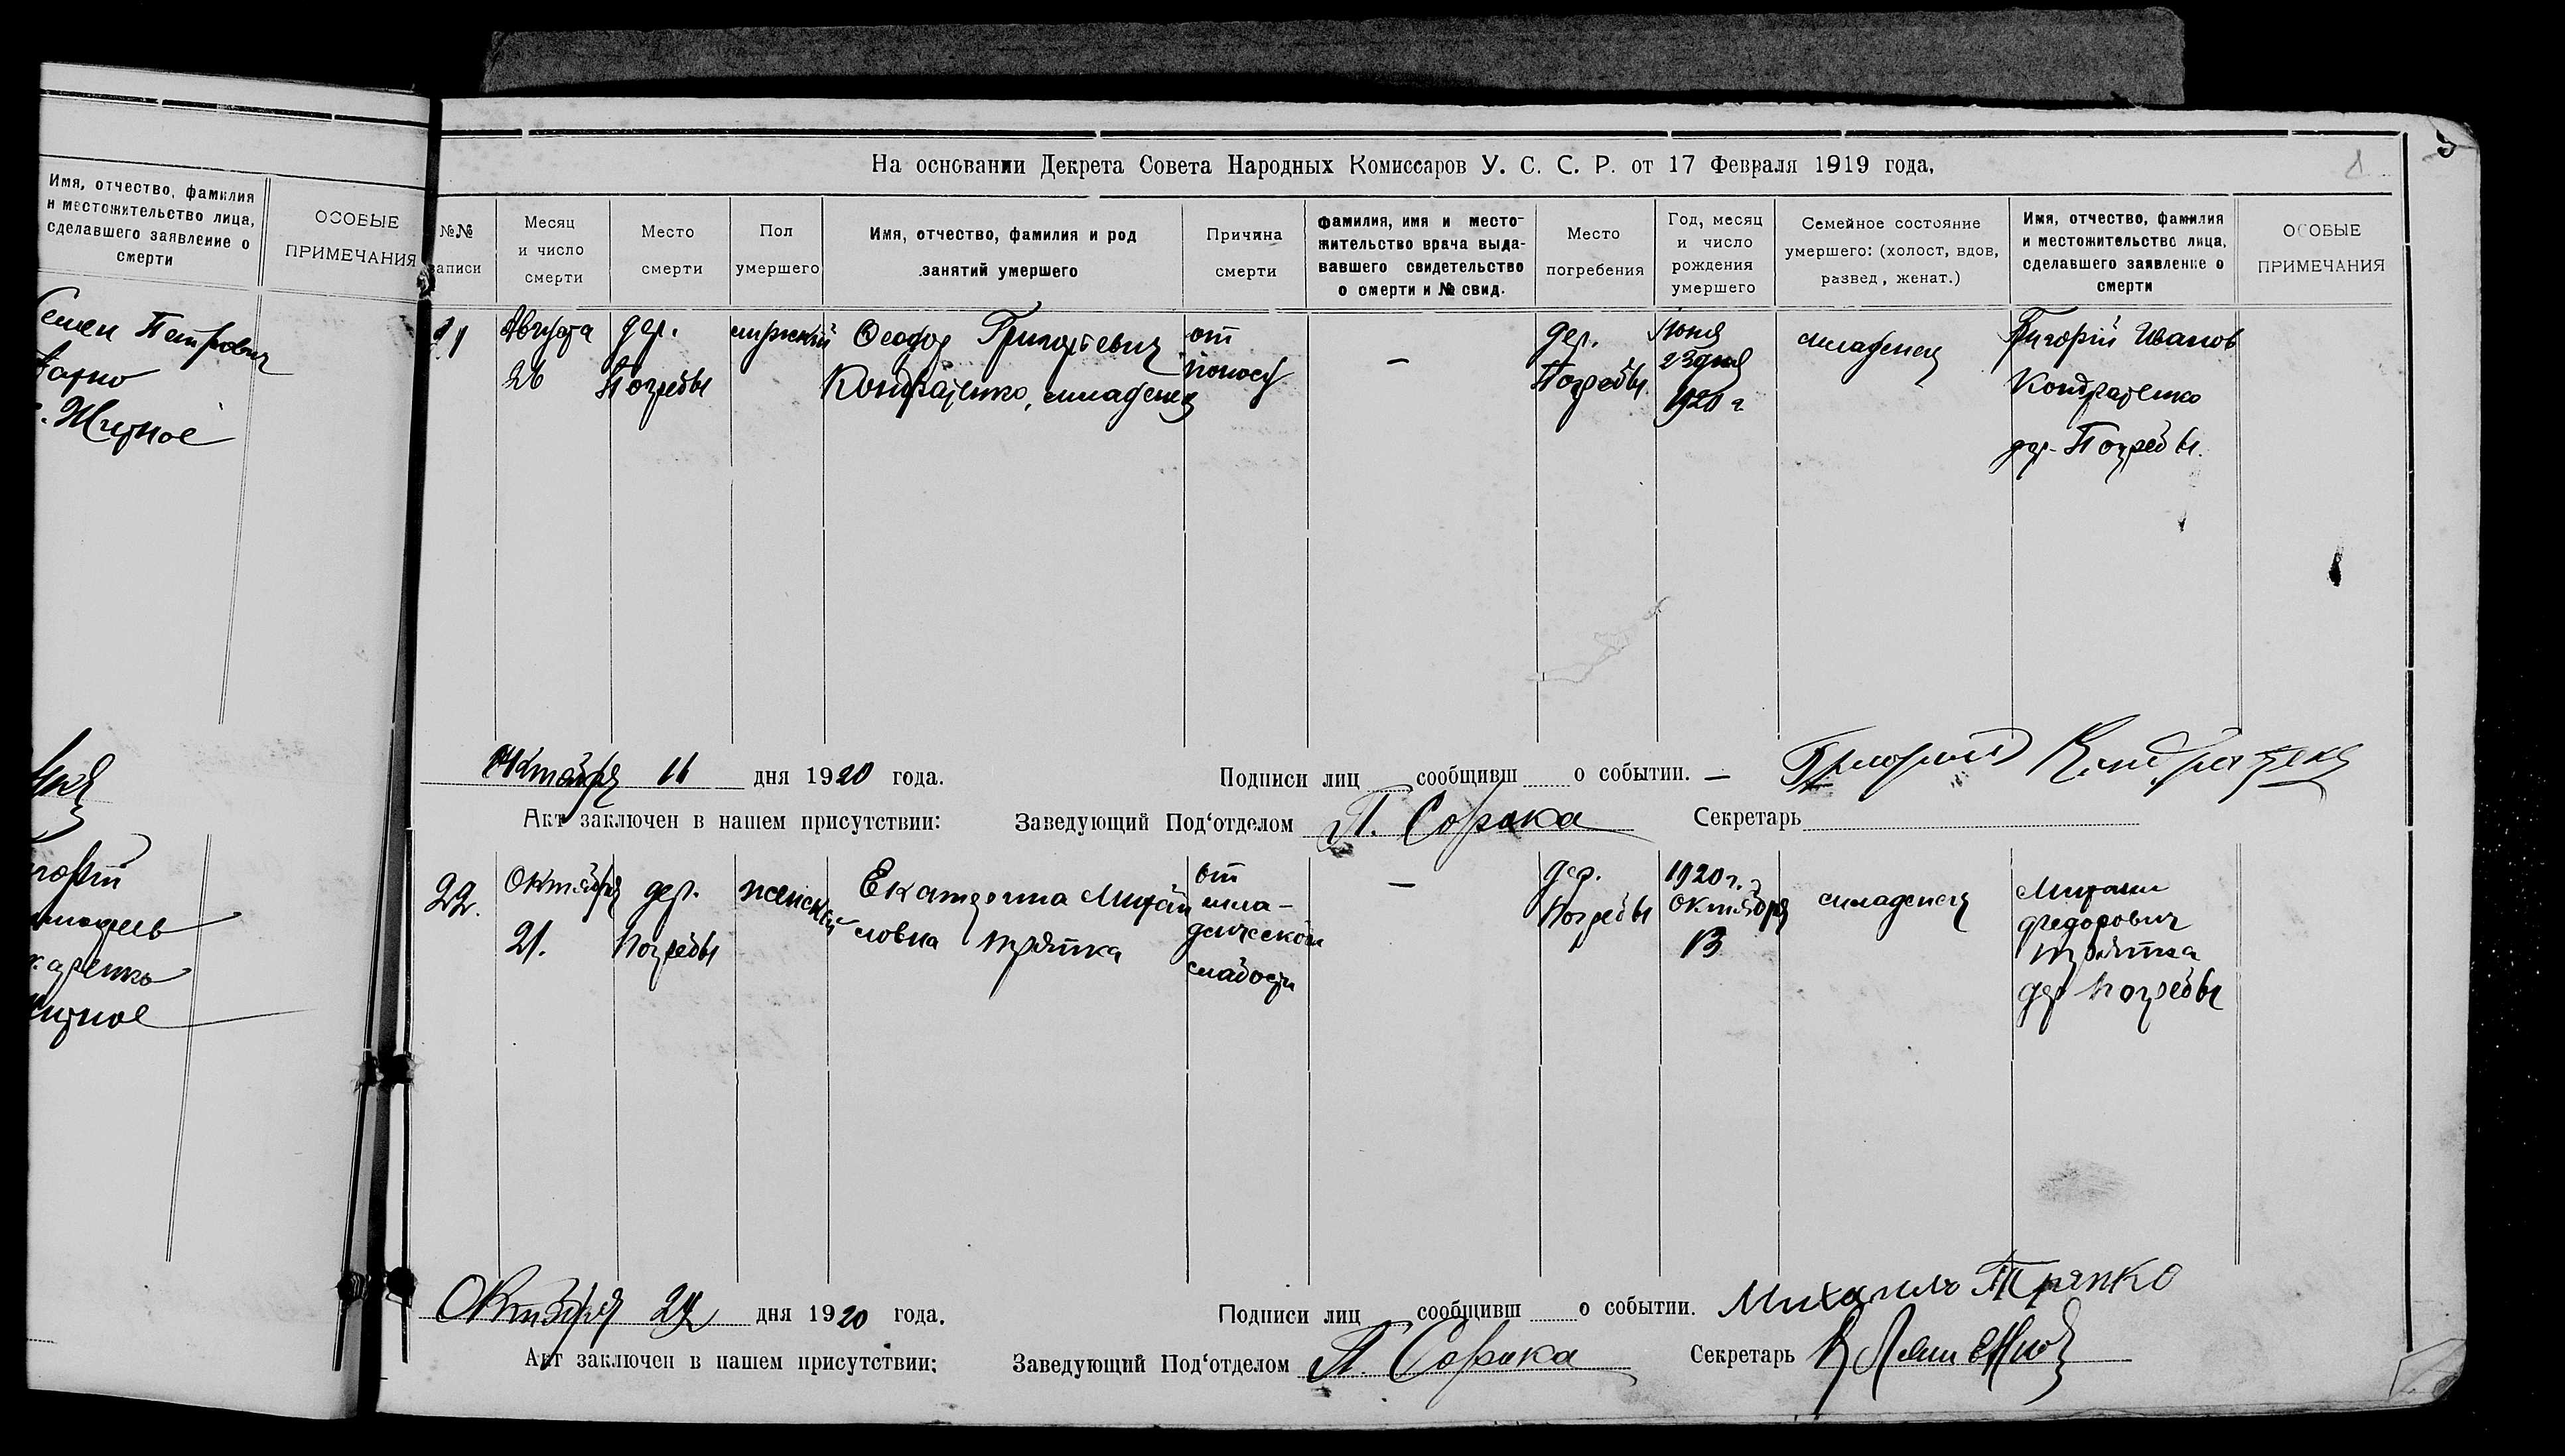 Имя, отчество, фамилия
и местожительство лица,
сделавшего заявление о
смерти
ОСОБЫЕ
ПРИМЕЧАНИЯ
Семен Петрович
с. Житное
На основании Декрета Совета Народных Комиссаров У. С. С. Р. от 17 Февраля 1919 года.
№№
записи
Месяц
и число
смерти
Место
смерти
Пол
умершего
Имя, отчество, фамилия и род
занятий умершего
Причина
смерти
фамилия, имя и место-
жительство врача выда-
вавшего свидетельство
о смерти и № свид.
Место
погребения
Год, месяц
и число
рождения
умершего
Семейное состояние
умершего: (холост, вдов,
развед, женат.)
Имя, отчество, фамилия
и местожительство лица,
сделавшего заявление о
смерти
ОСОБЫЕ
ПРИМЕЧАНИЯ
21
Августа
26
дер.
Погребы
мужский
Феодор Григорьевич
Кондратенко, младенец
от
поноса
—
дер.
Погребы.
Июня
23 дня
1920 г
младенец
Григорий Иванов
Кондратенко
дер. Погребы.
Октября 16 дня 1920 года.
Подписи лиц сообщивш о событии. — Григорий Кондратенко
Акт заключен в нашем присутствии: Заведующий Под'отделом П. Сорока Секретарь
22.
Октября
21.
дер.
Погребы
женский
Екатерина Михай
ловна Тряпка
от
мла-
денческой
слабости
—
дер.
Погребы
1920 г.
Октября
13
младенец
Михаил
Федорович
Тряпка
дер Погребы
Октября 24 дня 1920 года.
Подписи лиц сообщивш о событии. Михаило Тряпко
Акт заключен в нашем присутствии: Заведующий Под'отделом П. Сорока Секретарь